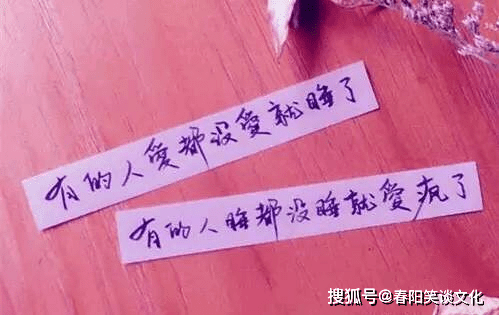 有的人愛都没愛就睡了
有的人睡都没睡就愛疯了
搜狐号@春阳笑谈文化